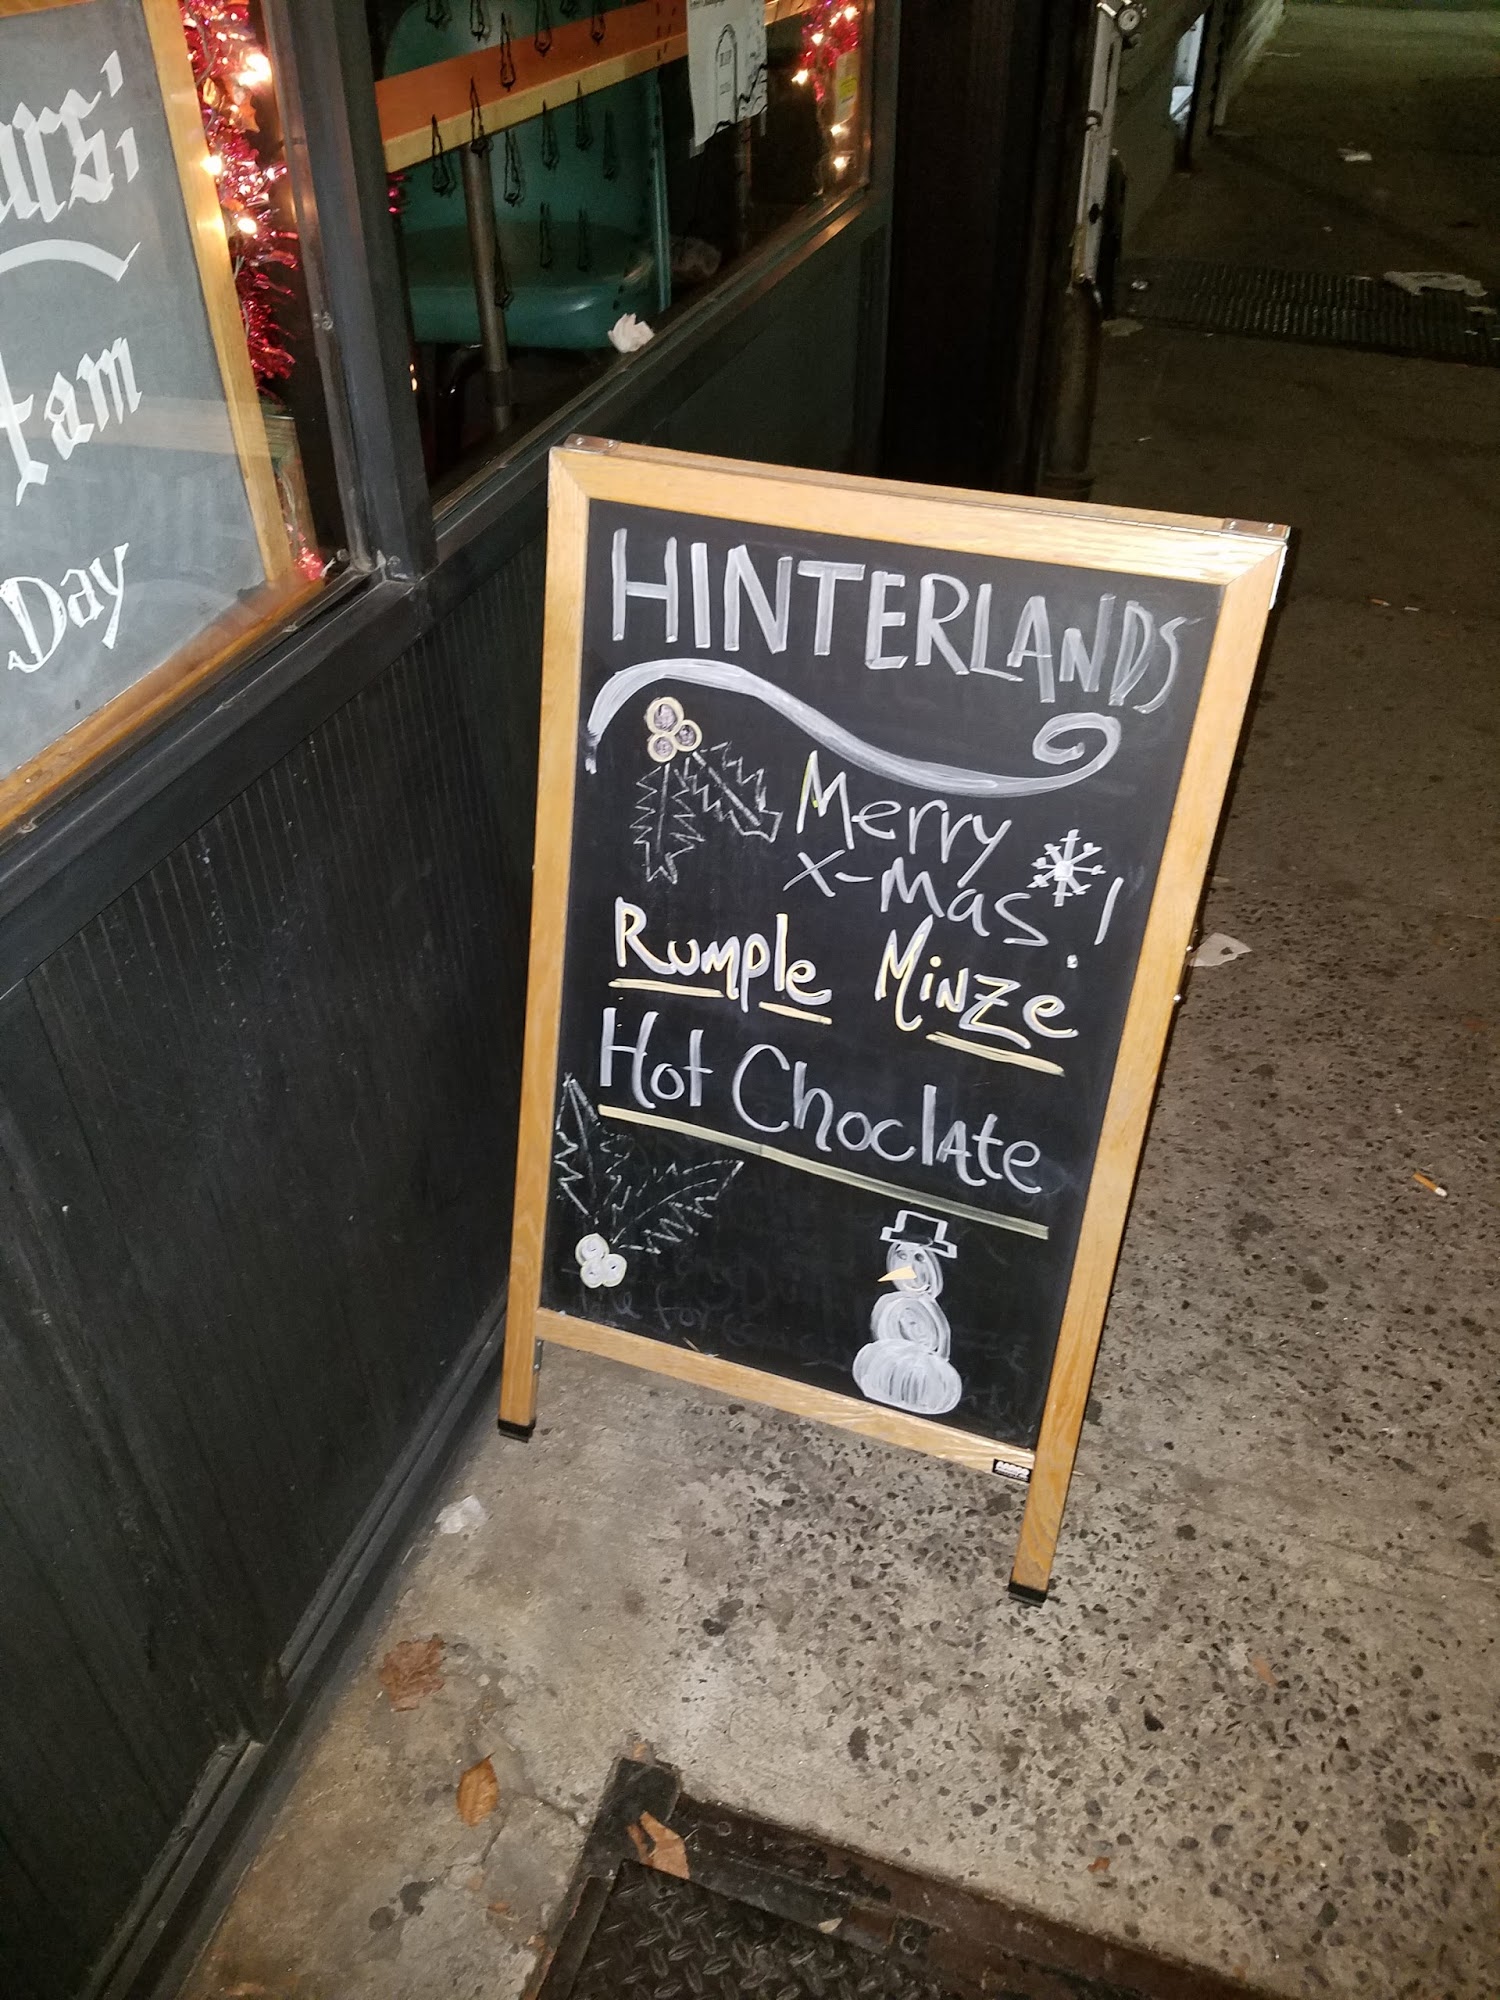 HINTERLANDS
Merry
X-Mas!
Rumple Minze
Hot Choclate
4am
Day
RIP